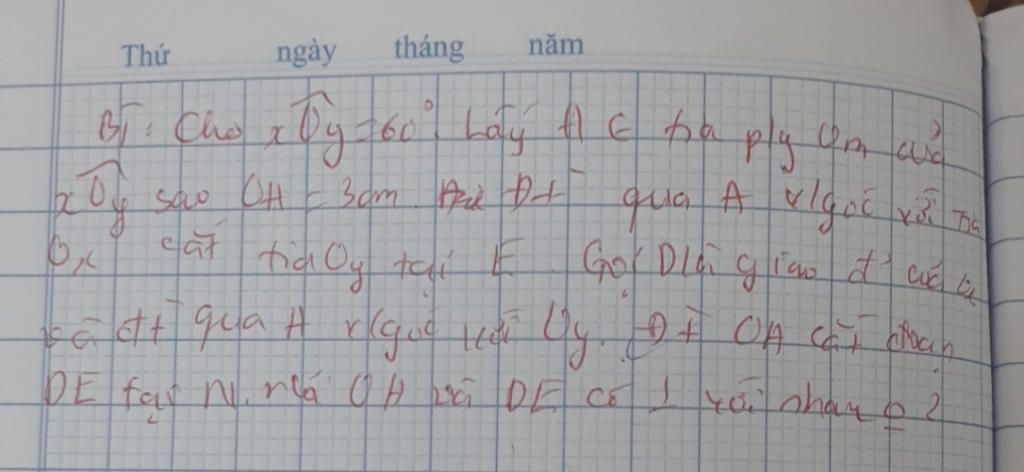 Thứ ngày tháng năm
B1: Cho xOy = 60° Lấy A ∈ tia p/g Om của
xOy sao OA = 3cm. Đt qua A v/góc với tia
Ox cắt tia Oy tại E Gọi D là giao đ của Ox
và đt qua A v/góc với Oy. Đt OA cắt đoạn
DE tại N. OA và DE có ⊥ với nhau ko?